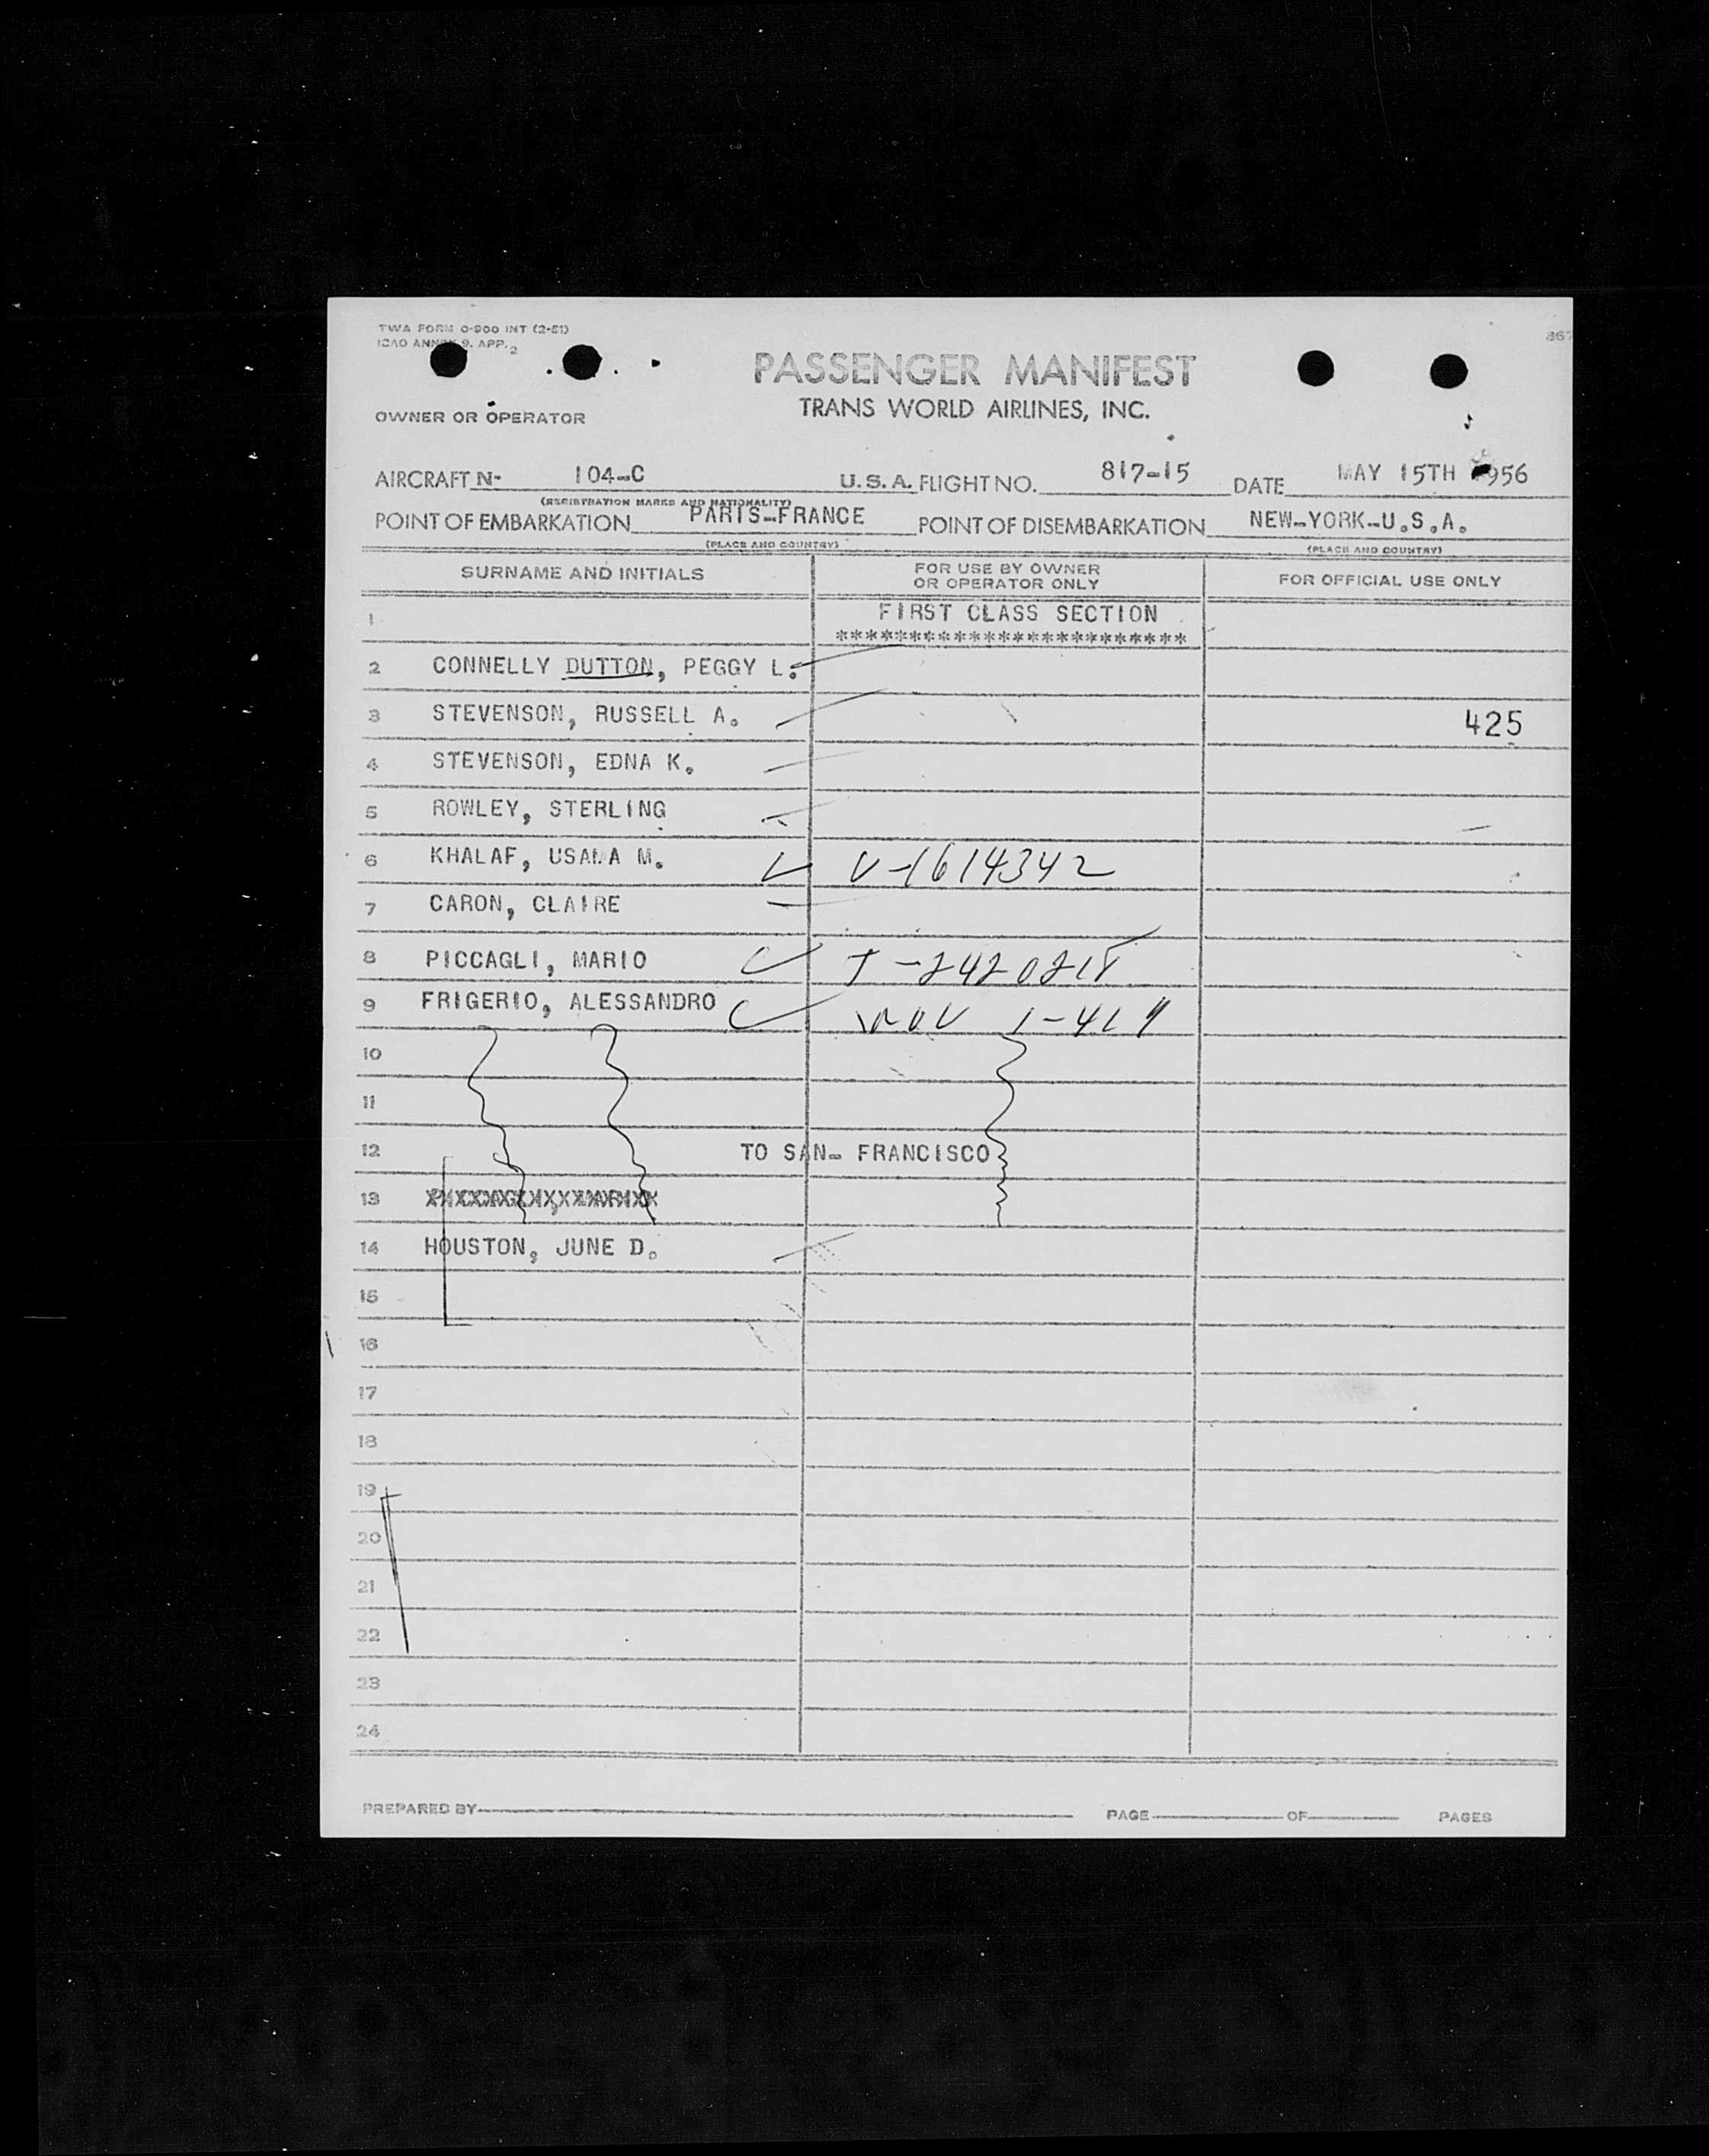 TWA FORM O-900 INT (2-51)
ICAO ANNEX 9. APP. 2
367
PASSENGER MANIFEST
TRANS WORLD AIRLINES, INC.
OWNER OR OPERATOR
AIRCRAFT N- 104-C U.S.A. FLIGHT NO. 817-15 DATE MAY 15TH 1956
(REGISTRATION MARKS AND NATIONALITY)
POINT OF EMBARKATION PARIS-FRANCE POINT OF DISEMBARKATION NEW-YORK-U.S.A.
(PLACE AND COUNTRY) (PLACE AND COUNTRY)
SURNAME AND INITIALS FOR USE BY OWNER OR OPERATOR ONLY FOR OFFICIAL USE ONLY
1 FIRST CLASS SECTION
************************
2 CONNELLY DUTTON, PEGGY L.
3 STEVENSON, RUSSELL A. 425
4 STEVENSON, EDNA K.
5 ROWLEY, STERLING
6 KHALAF, USAMA M. V-1614342
7 CARON, CLAIRE
8 PICCAGLI, MARIO
9 FRIGERIO, ALESSANDRO
10
11
12 TO SAN- FRANCISCO
13
14 HOUSTON, JUNE D.
15
16
17
18
19
20
21
22
23
24
PREPARED BY PAGE OF PAGES